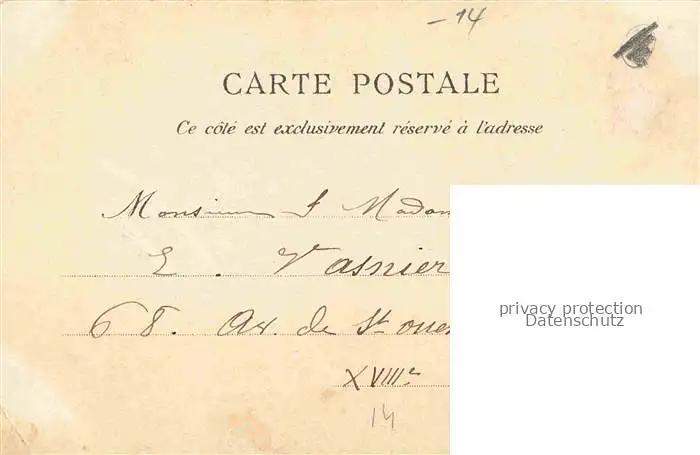 -14
CARTE POSTALE
Ce côté est exclusivement réservé à l'adresse
Monsieur & Madam
E. Vasnier
68. Av. de St ouen
XVIIIe
privacy protection
Datenschutz
14